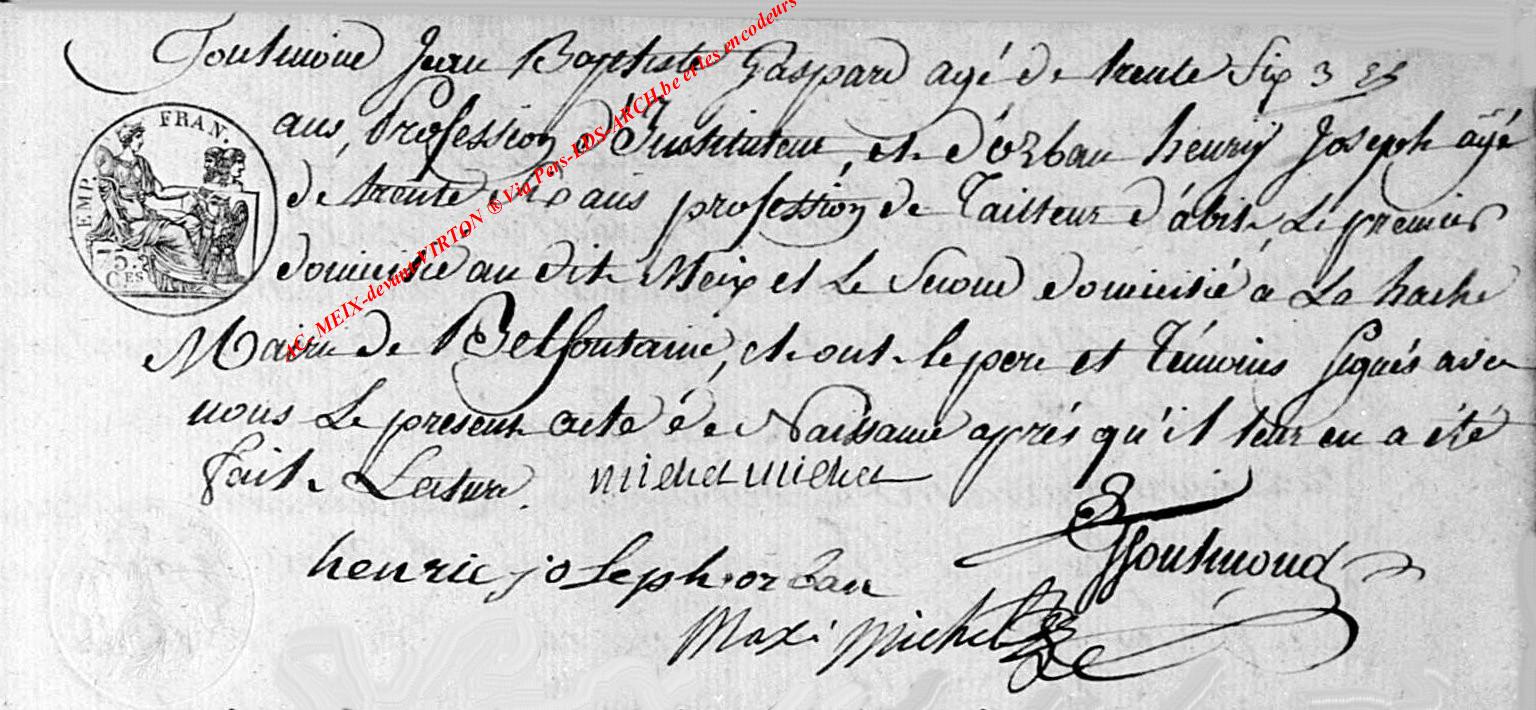 Toutmond Jean Baptiste Gaspard agé de trente Six
ans, Profession d'Instituteur, et d'Orban henrÿ Joseph agé
de trente six ans profession de Tailleur d'abit, Le premier
domicilié au dit Meix et Le Second domicilié a La hache
Mairie de Belfontaine, et ont le pere et Témoins Signés avec
nous Le present acte de Naissance aprés qu'il leur en a été
fait Lecture.
michel michel
henric joseph orban
Toutmond
Maxi Michel
EMP. FRAN.
75.
CES
AC- MEIX-devant-VIRTON ® Via Pers-LDS-ARCH.be et les encodeurs